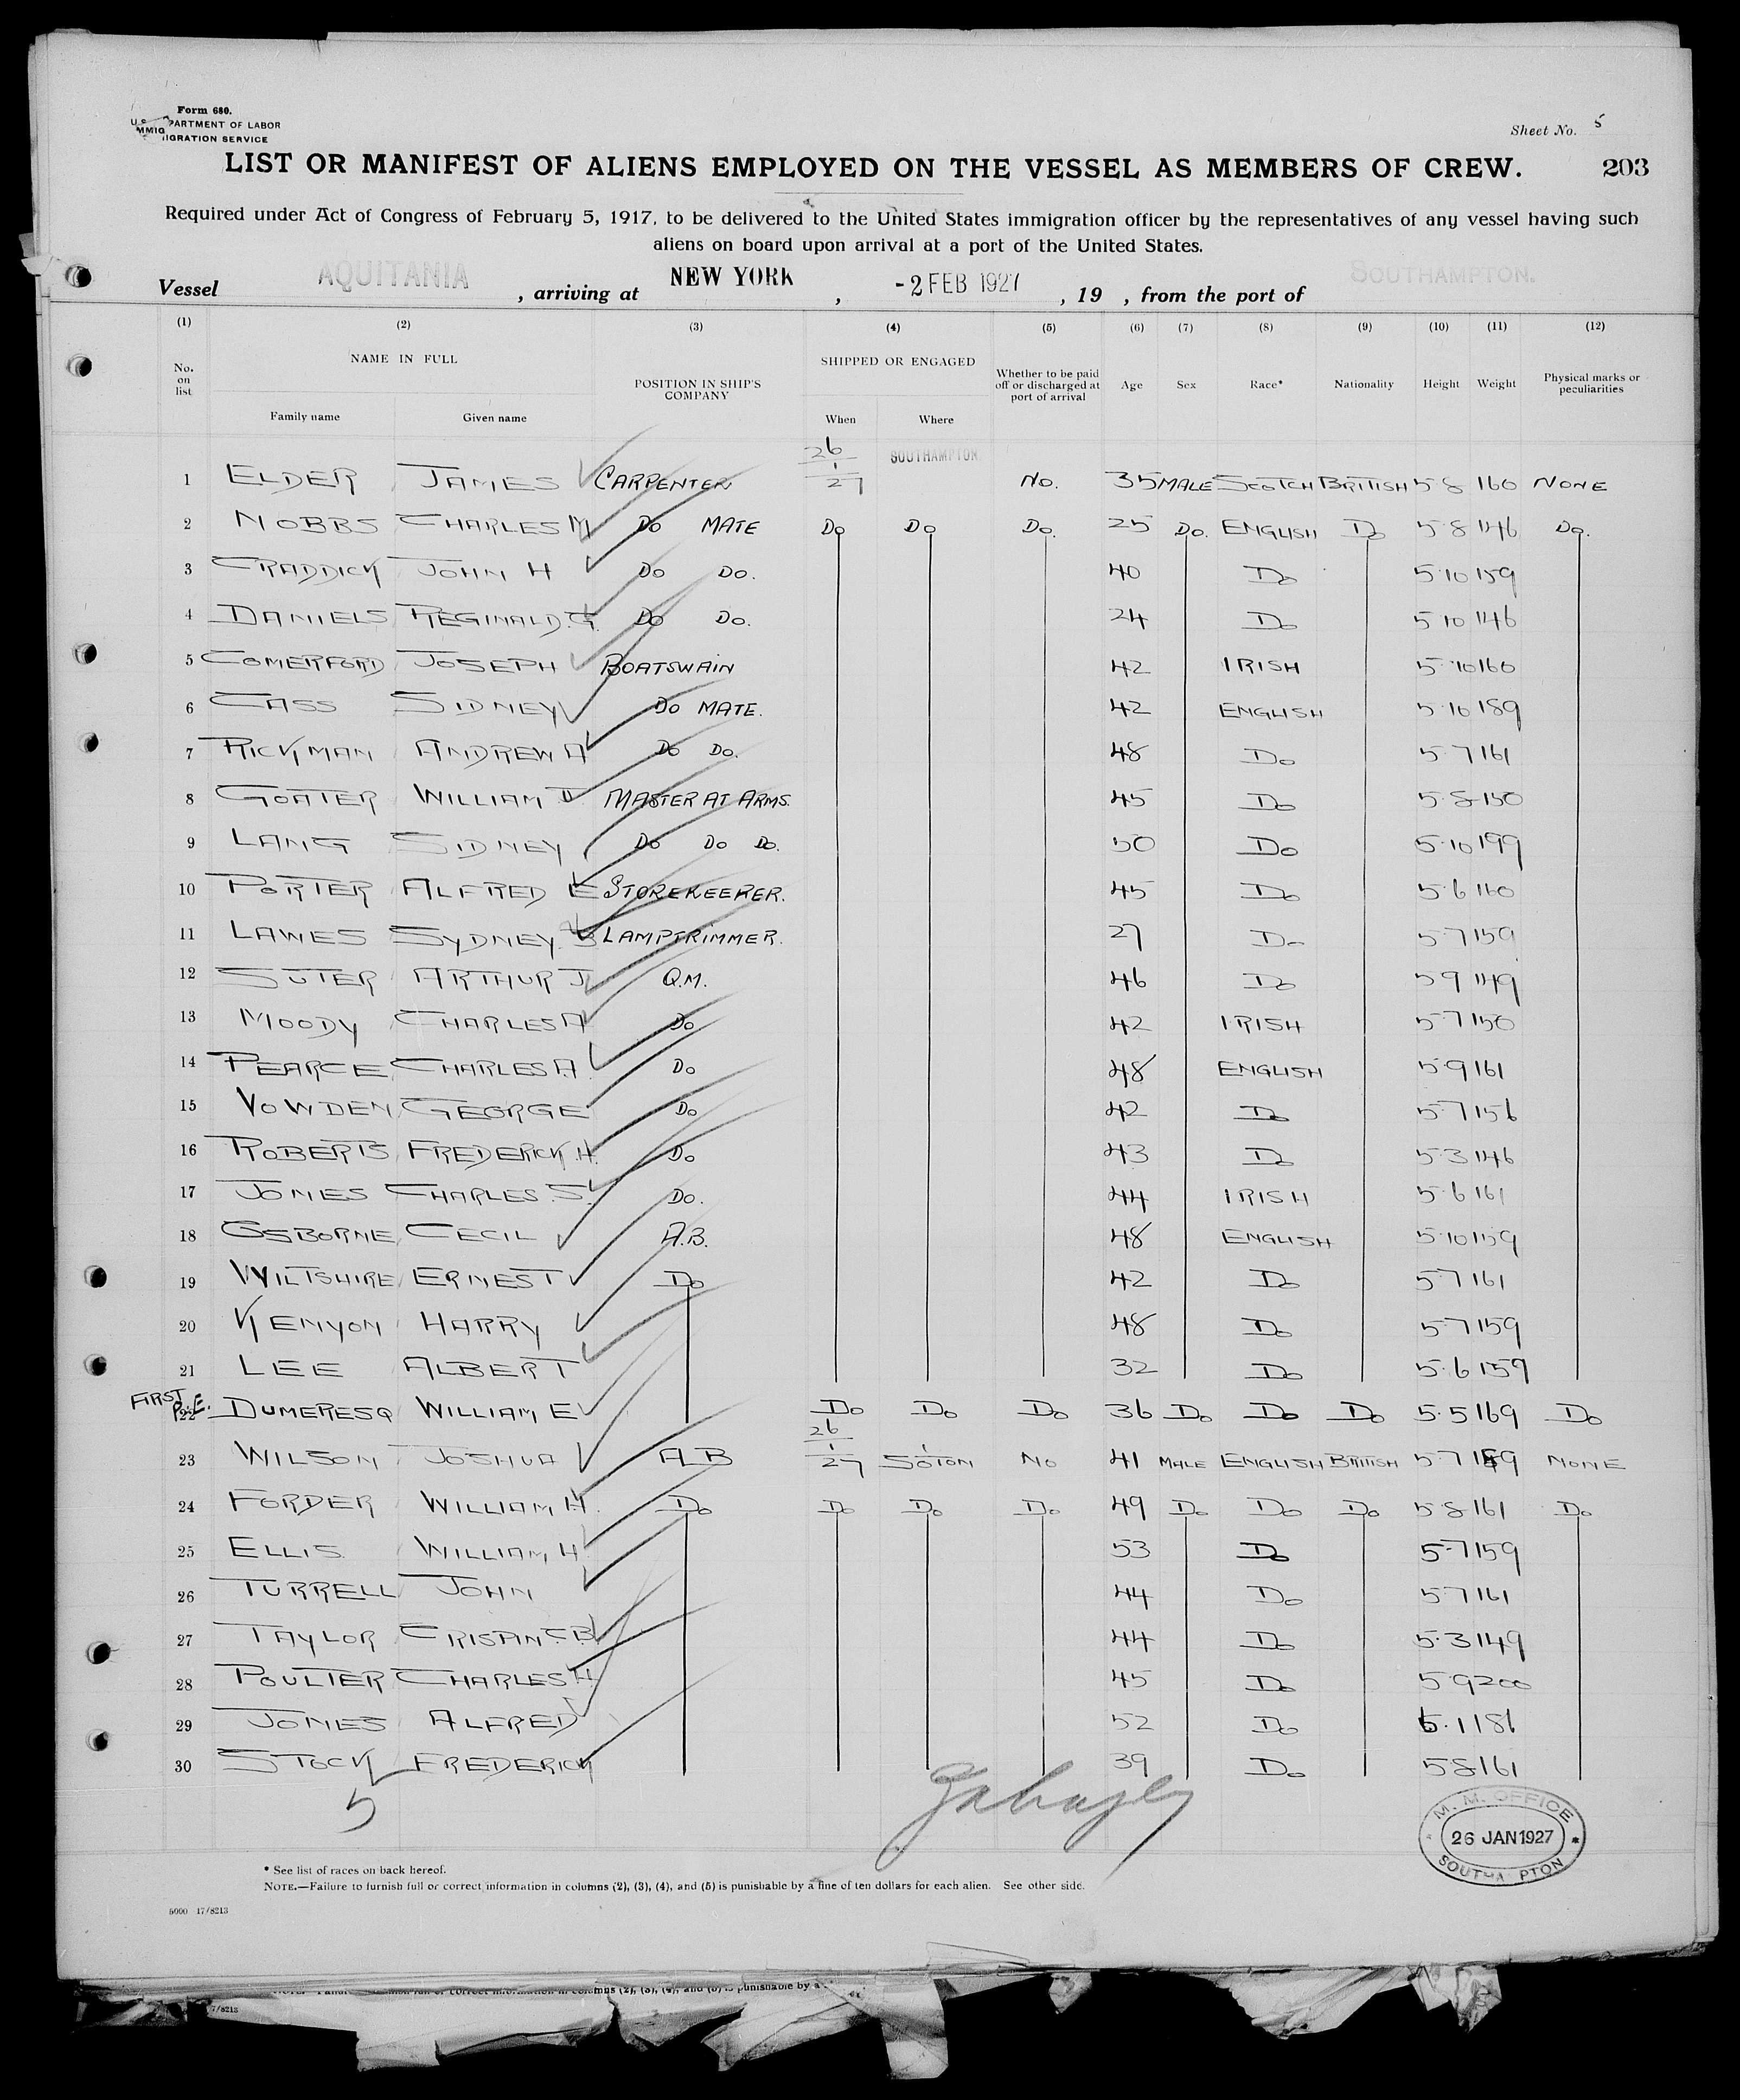 Form 680.
U.S. DEPARTMENT OF LABOR
IMMIGRATION SERVICE
Sheet No. 5
LIST OR MANIFEST OF ALIENS EMPLOYED ON THE VESSEL AS MEMBERS OF CREW. 203
Required under Act of Congress of February 5, 1917, to be delivered to the United States immigration officer by the representatives of any vessel having such
aliens on board upon arrival at a port of the United States.
Vessel AQUITANIA, arriving at NEW YORK, -2 FEB 1927, 19 , from the port of SOUTHAMPTON.
(1) (2) (3) (4) (5) (6) (7) (8) (9) (10) (11) (12)
No. on list NAME IN FULL Family name Given name POSITION IN SHIP'S COMPANY SHIPPED OR ENGAGED When Where Whether to be paid off or discharged at port of arrival Age Sex Race* Nationality Height Weight Physical marks or peculiarities
1 ELDER JAMES CARPENTER 26/1/27 SOUTHAMPTON No. 35 MALE SCOTCH BRITISH 5 8 160 NONE
2 NOBBS CHARLES M Do MATE Do Do Do. 25 Do. ENGLISH Do 5 8 146 Do.
3 CRADDICK JOHN H Do Do. 40 Do 5.10 159
4 DANIELS REGINALD.G. Do Do. 24 Do 5 10 146
5 COMERFORD JOSEPH BOATSWAIN 42 IRISH 5.10 160
6 CASS SIDNEY Do MATE. 42 ENGLISH 5.10 189
7 RICKMAN ANDREW A Do Do. 48 Do 5.7 161
8 GOATER WILLIAM D MASTER AT ARMS. 45 Do 5.8 150
9 LANG SIDNEY Do Do Do. 50 Do 5.10 199
10 PORTER ALFRED E STOREKEEPER. 45 Do 5.6 160
11 LAWES SYDNEY LAMPTRIMMER. 27 Do 5.7 159
12 SUTER ARTHUR J Q.M. 46 Do 5 9 149
13 MOODY CHARLES A Do 42 IRISH 5.7 150
14 PEARCE CHARLES A. Do 48 ENGLISH 5.9 161
15 VOWDEN GEORGE Do 42 Do 5.7 156
16 ROBERTS FREDERICK.H. Do 43 Do 5.3 146
17 JONES CHARLES.S. Do. 44 IRISH 5.6 161
18 OSBORNE CECIL A.B. 48 ENGLISH 5.10 159
19 WILTSHIRE ERNEST Do 42 Do 5.7 161
20 KENYON HARRY 48 Do 5.7 159
21 LEE ALBERT 32 Do 5.6 159
FIRST P.E.
22 DUMERESQ WILLIAM E Do Do Do 36 Do Do Do 5.5 169 Do
23 WILSON JOSHUA A B 26/1/27 SO'TON No 41 MALE ENGLISH BRITISH 5.7 159 NONE
24 FORDER WILLIAM H. Do Do Do Do 49 Do Do Do 5.8 161 Do
25 ELLIS WILLIAM H. 53 Do 5.7 159
26 TURRELL JOHN 44 Do 5.7 161
27 TAYLOR CRISPIN C.B. 44 Do 5.3 149
28 POULTER CHARLES H. 45 Do 5.9 200
29 JONES ALFRED 52 Do 6.1 186
30 STOCK FREDERICK 39 Do 5.8 161
5
M. M. OFFICE
26 JAN 1927
SOUTHAMPTON
* See list of races on back hereof.
NOTE.—Failure to furnish full or correct information in columns (2), (3), (4), and (5) is punishable by a fine of ten dollars for each alien. See other side.
5000 17/8213
7/8213